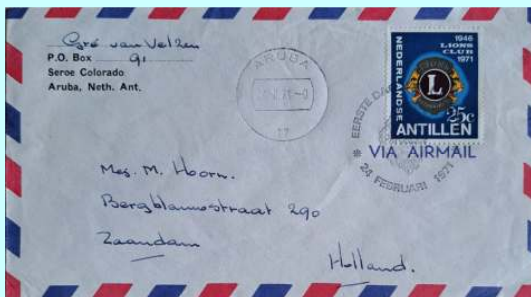 Coré van Velzen
P.O. Box 91
Seroe Colorado
Aruba, Neth. Ant.
ARUBA
17
1946
LIONS
CLUB
1971
NEDERLANDSE
L
25c
ANTILLEN
VIA AIRMAIL
EERSTE DA
24 FEBRUARI 1971
Mej. M. Hoorn.
Bergblauwstraat 290
Zaandam
Holland.